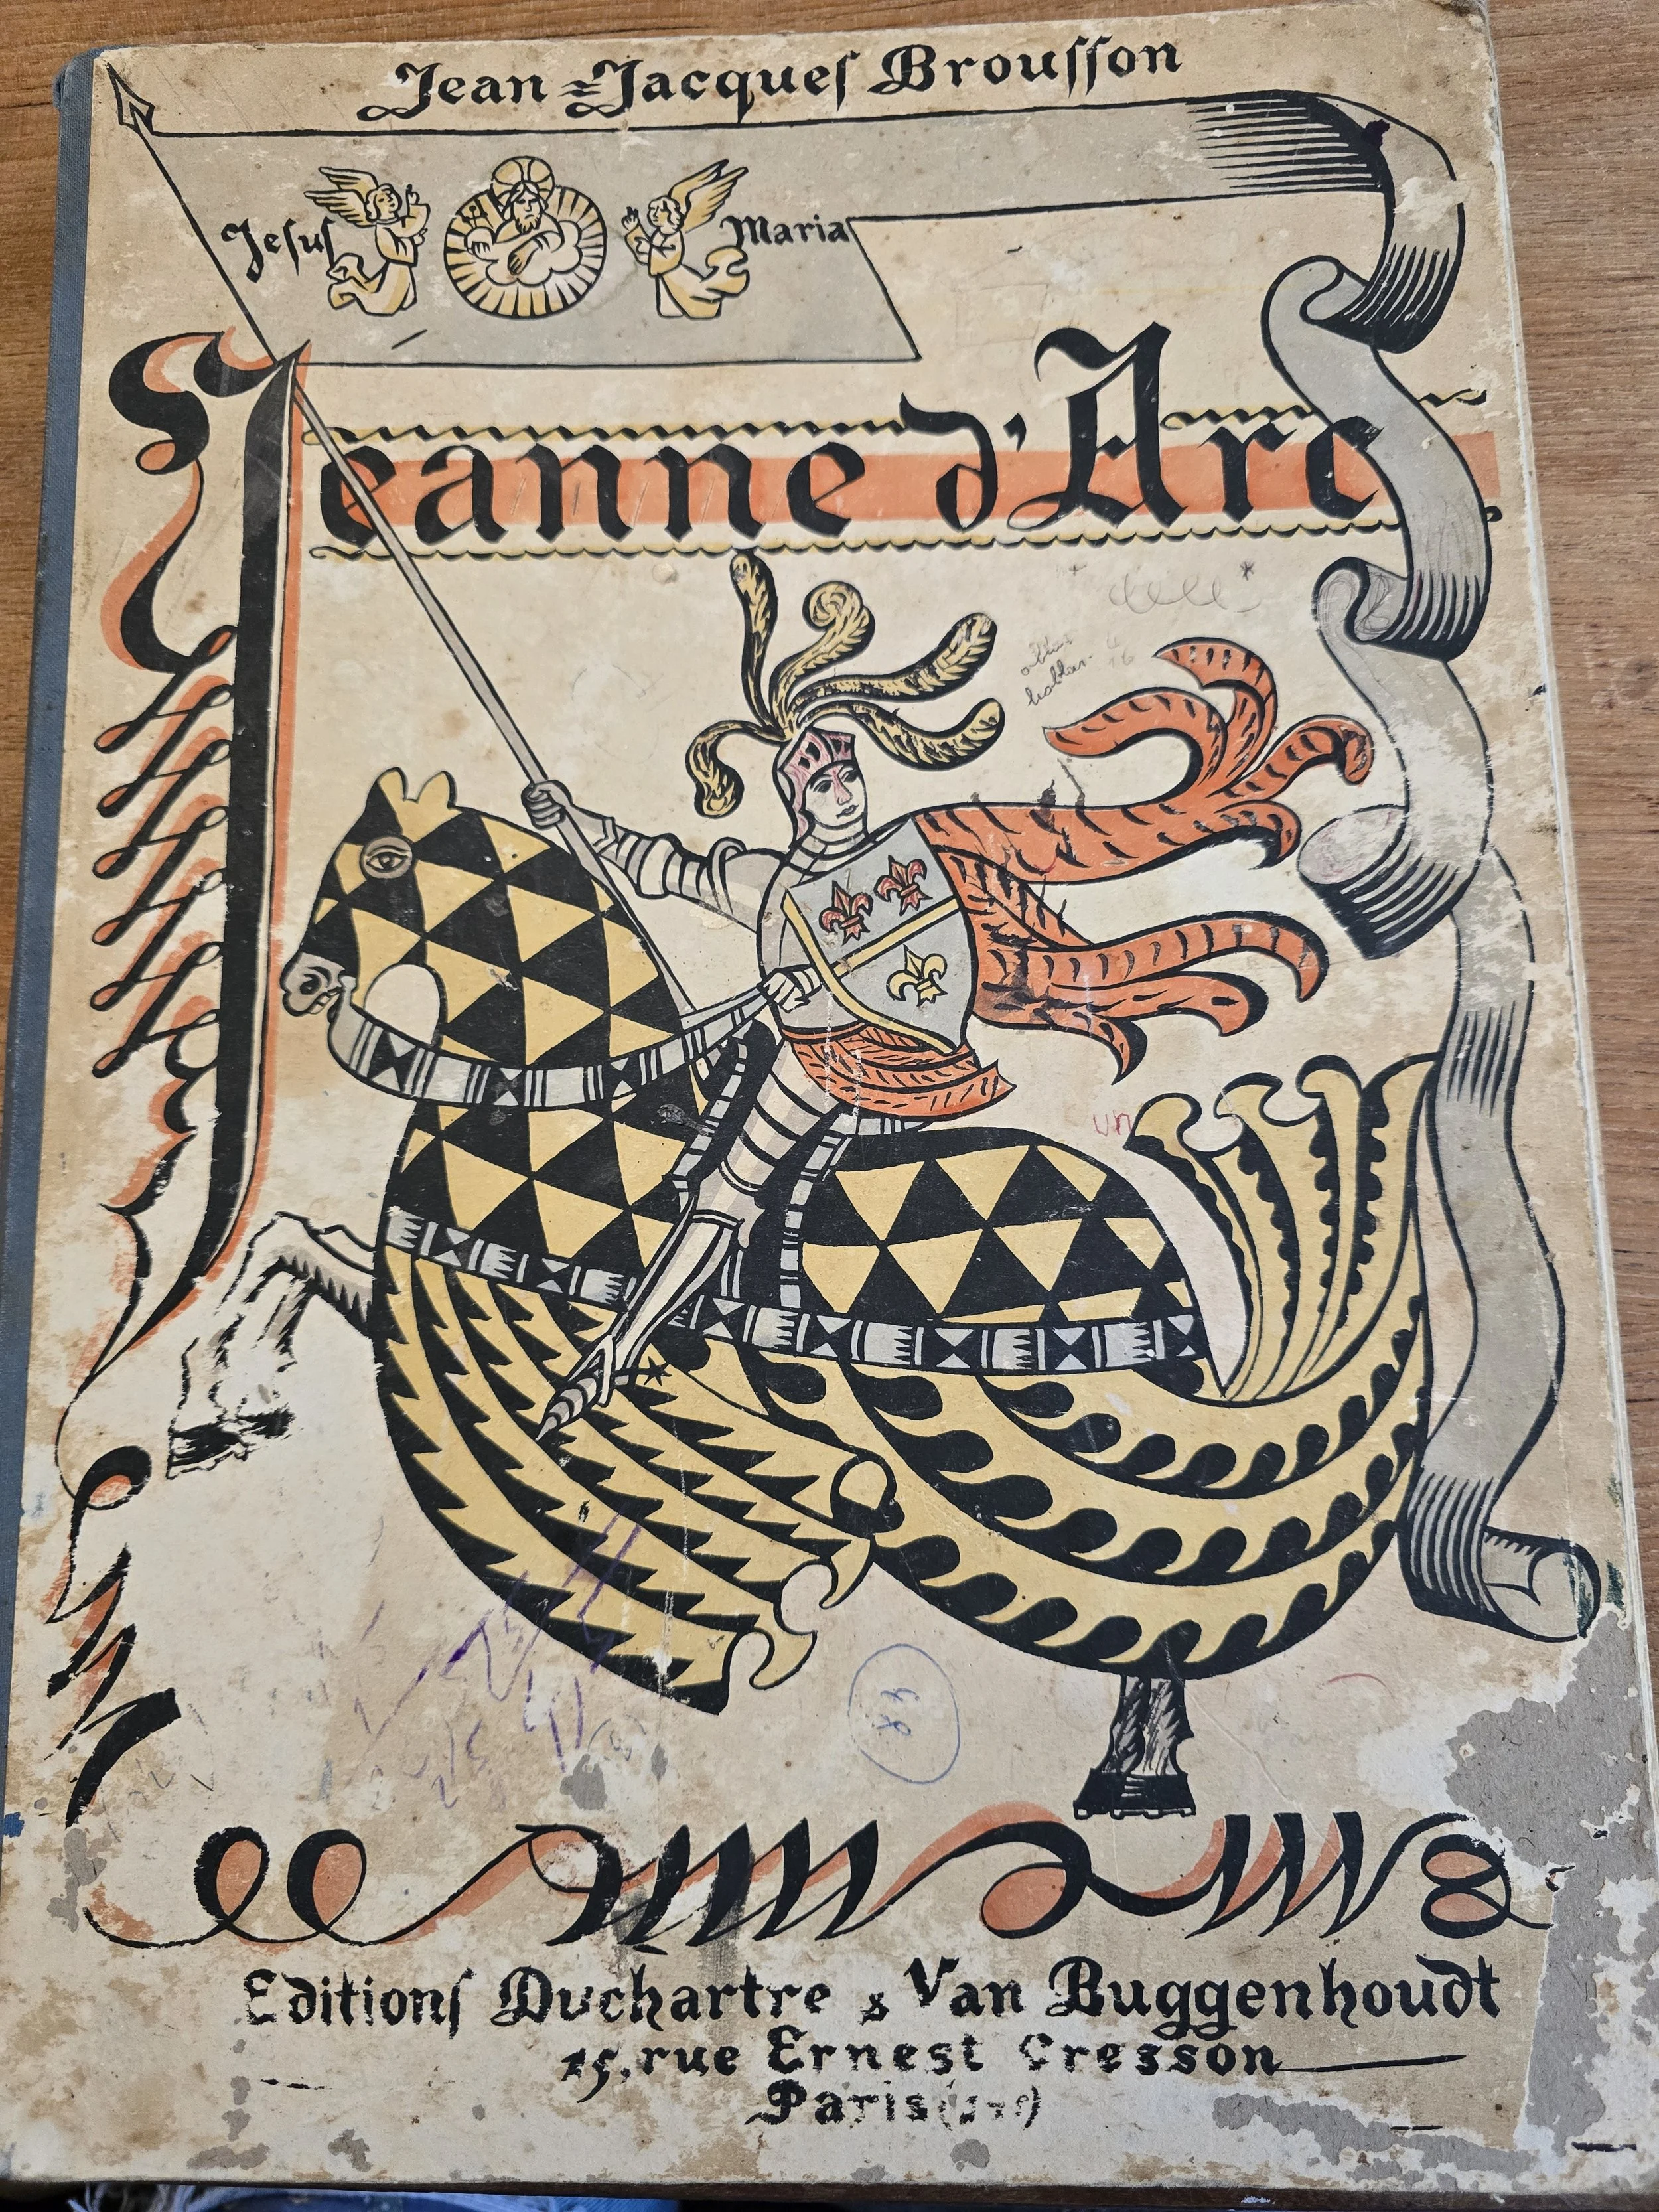 Jean=Jacques Brousson
Jesus Maria
Jeanne d'Arc
un
Editions Duchartre & Van Buggenhoudt
15, rue Ernest Cresson
Paris